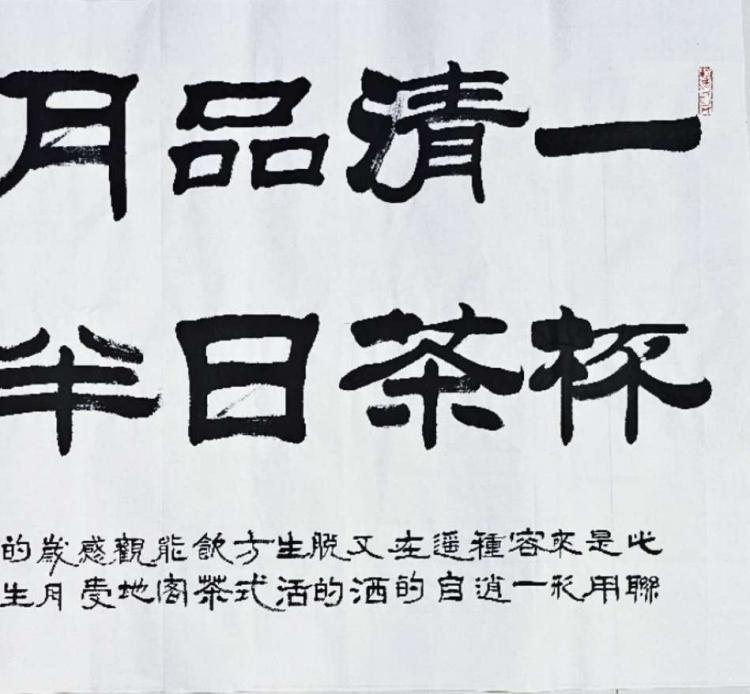 一杯
清茶
品日
月半
此聯
是用
來形
容一
種逍
遥自
在的
又洒
脱的
生活
方式
飲茶
能客
觀地
感受
歲月
的生